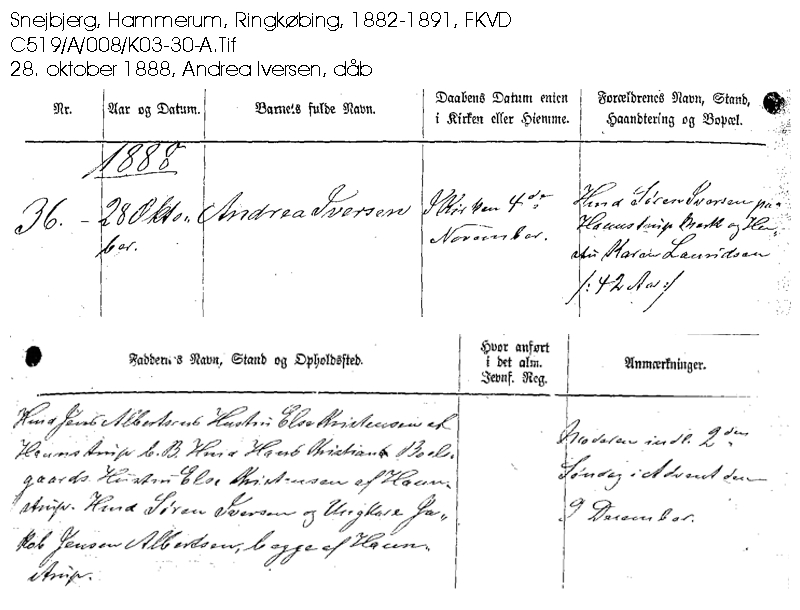 Snejbjerg, Hammerum, Ringkøbing, 1882-1891, FKVD
C519/A/008/K03-30-A.Tif
28. oktober 1888, Andrea Iversen, dåb
Nr.
Aar og Datum.
Barnets fulde Navn.
Daabens Datum enten
i Kirken eller Hjemme.
Forældrenes Navn, Stand,
Haandtering og Bopæl.
1888
36. - 28 Okto-
ber.
Andrea Iversen
I Kirken 4de
November.
Hmd Søren Iversen paa
Haunstrup Mark og Hu-
stru Karen Lauridsen
/: 42 Aar :/
Faddernes Navn, Stand og Opholdssted.
Hvor anført
i det alm.
Jevnf. Reg.
Anmærkninger.
Hmd Jens Albertsens Hustru Else Kristensen af
Haunstrup b. B. Hmd Hans Kristian Boel-
gaards Hustru Else Kristensen af Haun-
strup. Hmd Søren Iversen og Ungkarl Ja-
kob Jensen Albertsen, begge af Haun-
strup.
Moderen indl. 2den
Søndag i Advent den
9 December.